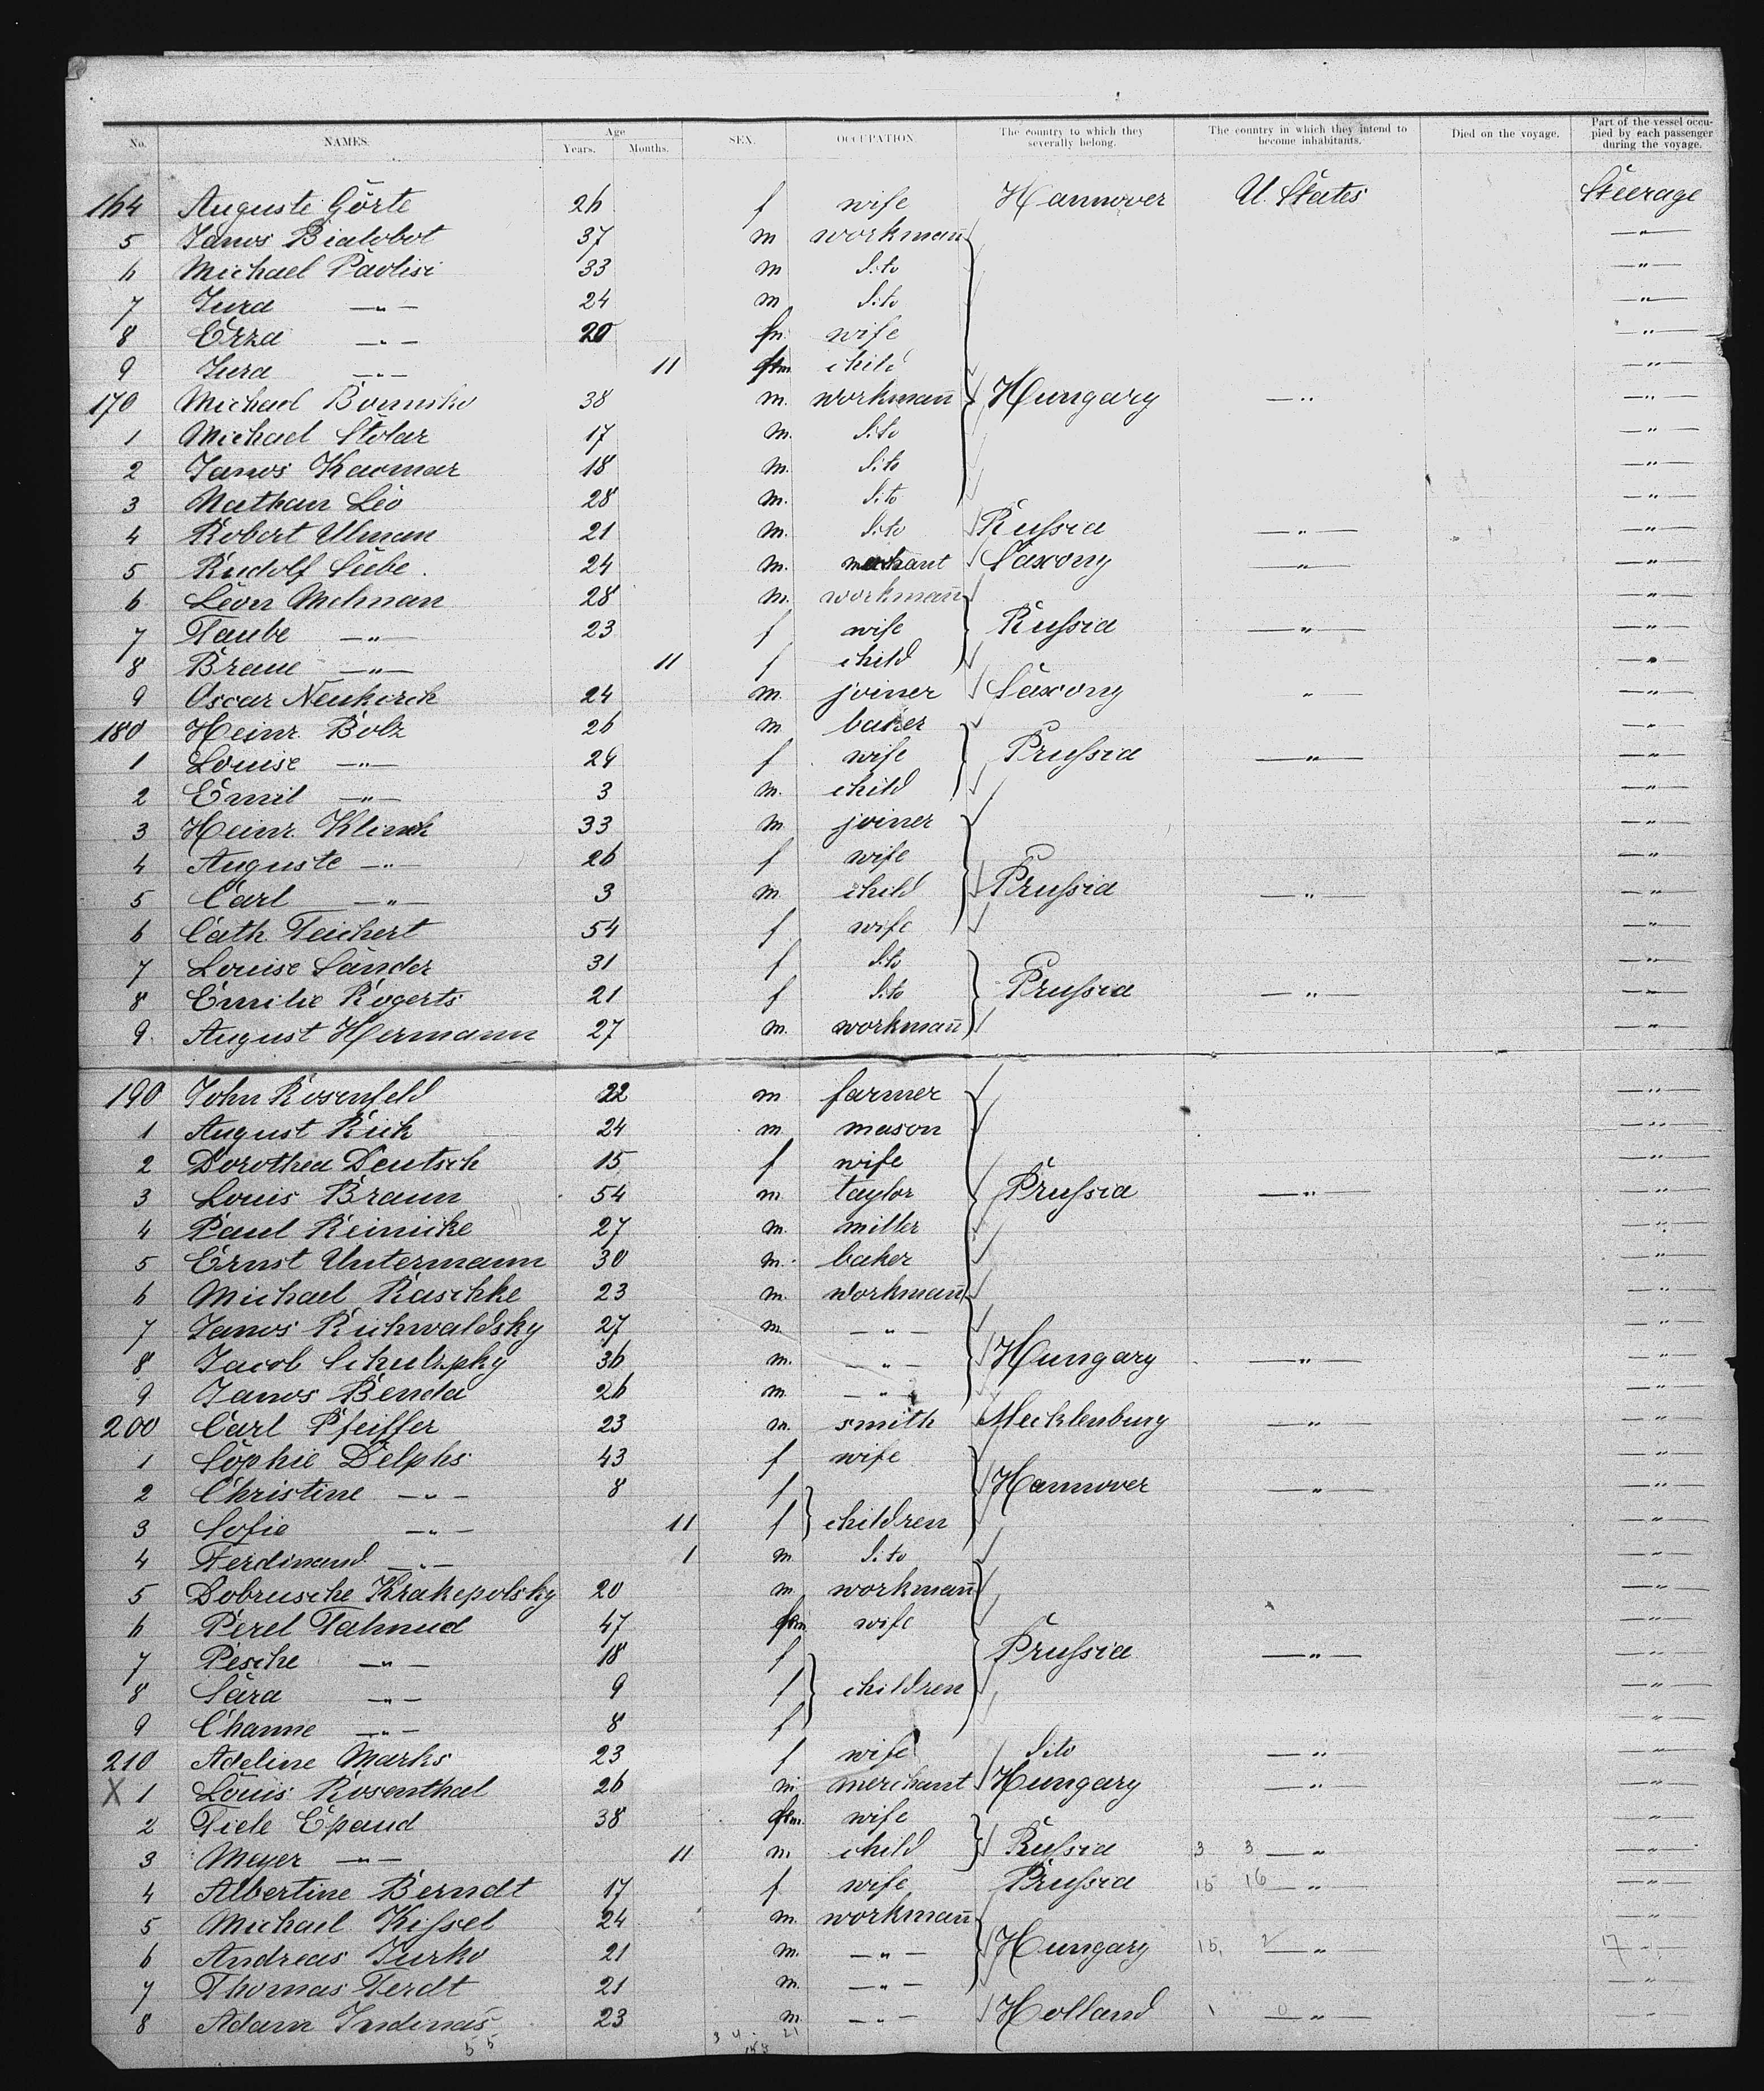 No. NAMES. Age Years. Months. SEX. OCCUPATION. The country to which they severally belong. The country in which they intend to become inhabitants. Died on the voyage. Part of the vessel occupied by each passenger during the voyage.
164 Auguste Görte 26 f wife Hannover U. States Steerage
5 Janos Bialobot 37 m workmañ —"—
6 Michael Pavlisi 33 m dito —"—
7 Jura —"— 24 m dito —"—
8 Erza —"— 20 fm wife —"—
9 Jura —"— 11 child —"—
170 Michael 38 m. workmañ Hungary —"— —"—
1 Michael Stolar 17 m. dito —"—
2 Janos Kaomar 18 m. dito —"—
3 Nathan Leo 28 m. dito —"—
4 Robert Ulman 21 m. dito Russia —"— —"—
5 Rudolf Liebe 24 m. Saxony —"— —"—
6 Leon Melman 28 m. workmañ —"—
7 Taube —"— 23 f wife Russia —"— —"—
8 Braue —"— 11 f child —"—
9 Oscar Neukirch 24 m. joiner Saxony —"— —"—
180 Heinr. Bolz 26 m. baker —"—
1 Louise —"— 24 f wife Prussia —"— —"—
2 Emil —"— 3 m. child —"—
3 Heinr. Klinck 33 m joiner —"—
4 Auguste —"— 26 f wife —"—
5 Carl —"— 3 m child Prussia —"— —"—
6 Cath. Teichert 54 f wife —"—
7 Louise Sander 31 f dito —"—
8 Emilie Rogerts 21 f dito Prussia —"— —"—
9. August Hermann 27 m. workmañ —"—
190 John Rosenfeld 22 m farmer —"—
1 August Rick 24 m mason —"—
2 Dorothea Deutsch 15 f wife —"—
3 Louis Braun 54 m. taylor Prussia —"— —"—
4 Paul Reinicke 27 m. miller —"—
5 Ernst Untermann 30 m. baker —"—
6 Michael Raschke 23 m. workmañ —"—
7 Janos Richwaldsky 27 m. —"— —"—
8 Jacob 36 m. —"— Hungary —"— —"—
9 Janos Benda 26 m. —"— —"—
200 Carl Pfeiffer 23 m. smith Mecklenburg —"— —"—
1 Sophie Delphs 43 f wife —"—
2 Christine —"— 8 f Hannover —"— —"—
3 Sofie —"— 11 f children —"—
4 Ferdinand —"— 1 m. dito —"—
5 Dobrusche Krakepolsky 20 m workmañ —"—
6 Perel Talmud 47 wife —"—
7 Pesche —"— 18 f Prussia —"— —"—
8 Sara —"— 9 f children —"—
9 Channe —"— 8 f —"—
210 Adeline Marks 23 f wife dito —"— —"—
X 1 Louis Rosenthal 26 m merchant Hungary —"— —"—
2 Tiele Epaud 38 wife —"—
3 Meyer —"— 11 m. child Russia 3 3 —"— —"—
4 Albertine Berndt 17 f wife Prussia 15 16 —"— —"—
5 Michael Kissel 24 m. workmañ —"—
6 Andreas Jurko 21 m. —"— Hungary 15, 2 —"— 17 —"—
7 Thomas Ferdt 21 m. —"— —"—
8 Adam Indinas 23 m —"— Holland 1 0 —"— —"—
55 21